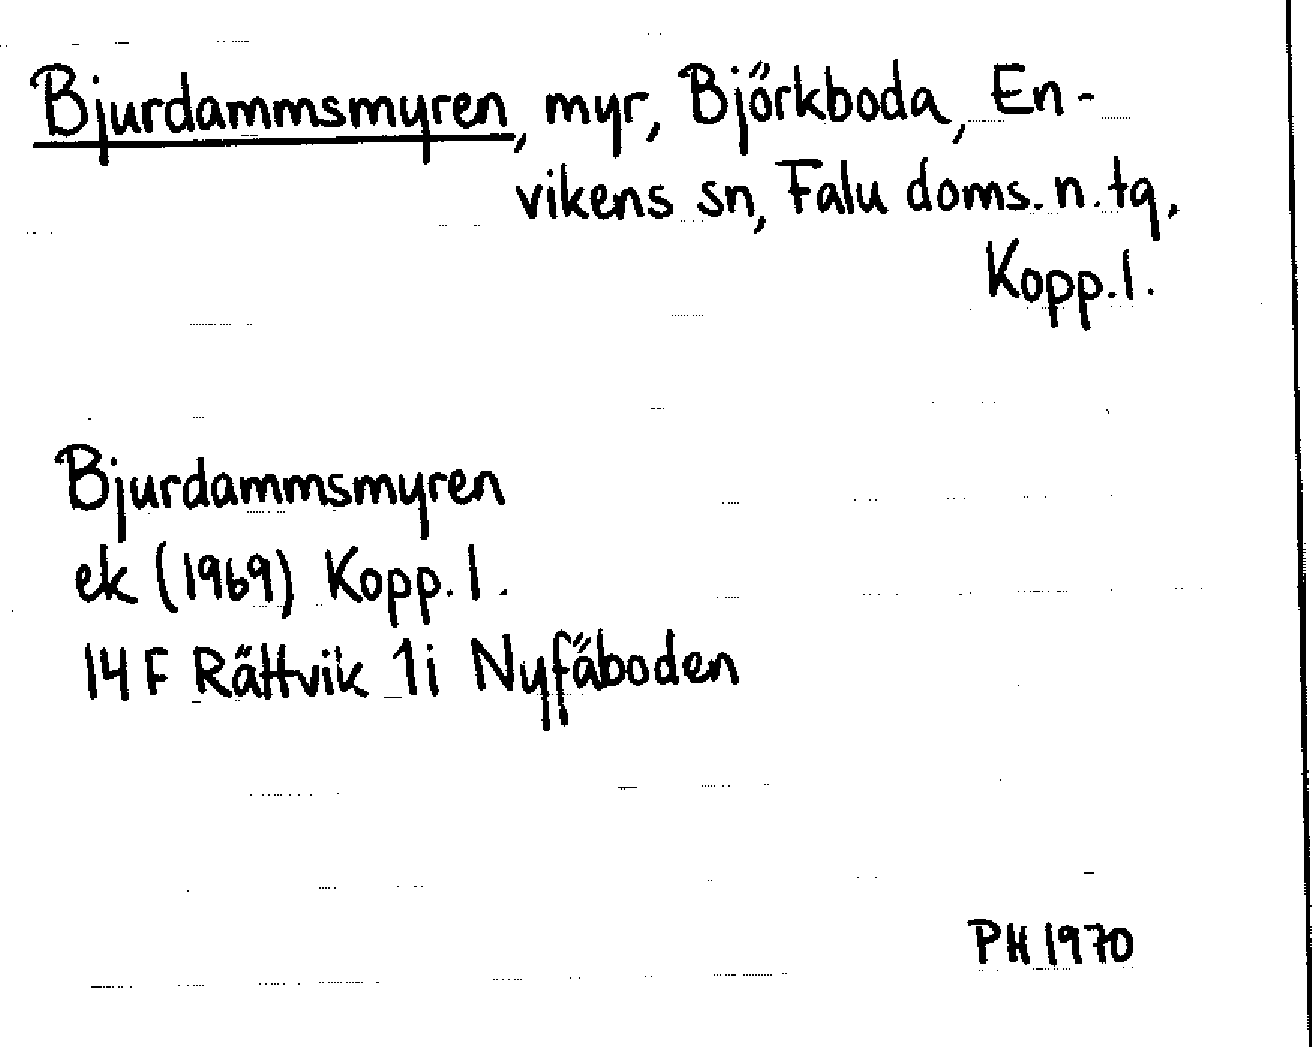 Bjurdammsmyren, myr, Björkboda, En-
vikens sn, Falu doms. n. tg,
Kopp. l.
Bjurdammsmyren
ek (1969) Kopp. l.
14 F Rättvik 1i Nyfäboden
PH 1970